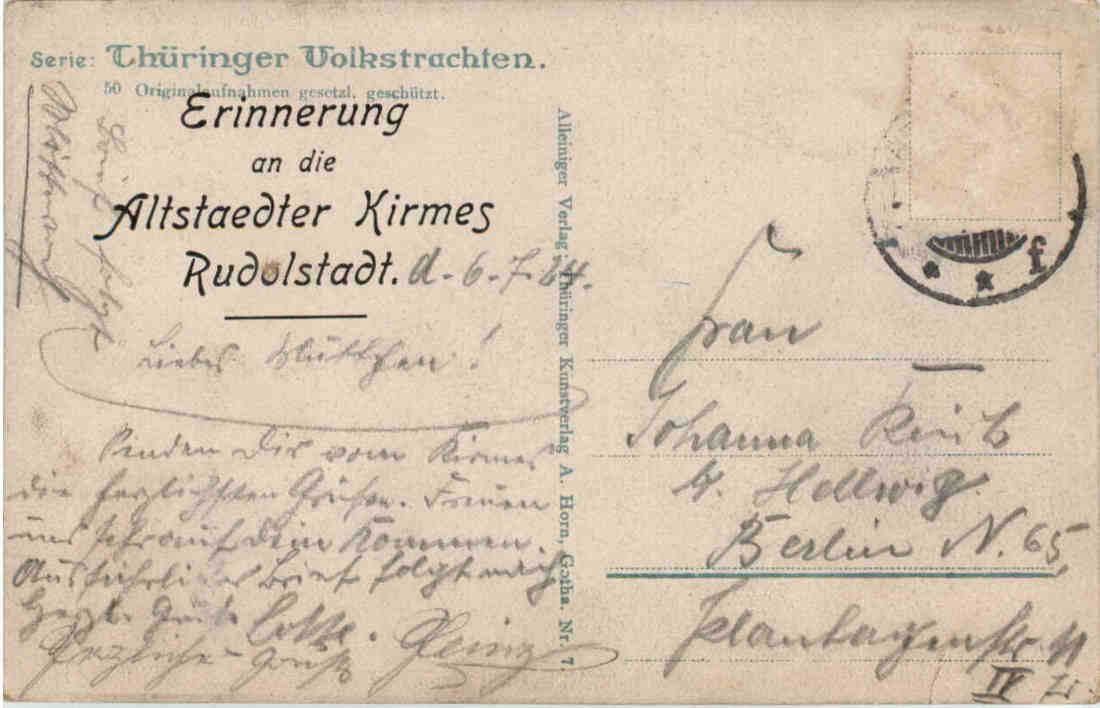 Serie: Thüringer Volkstrachten.
50 Originalaufnahmen gesetzl. geschützt.
Erinnerung
an die
Altstaedter Kirmes
Rudolstadt. d. 6.7.24.
Liebes Muttchen!
Senden Dir vom Kirmes
die herzlichsten Grüße. Freuen
uns sehr auf dein Kommen.
Ausführlicher Brief folgt nach
Herzl. Grüße Lotte.
Herzliche Grüße Heinz
Brief folgt
Alleiniger Verlag: Thüringer Kunstverlag A. Horn, Gotha. Nr. 7
Frau
Johanna
b. Hellwig.
Berlin N. 65,
IV